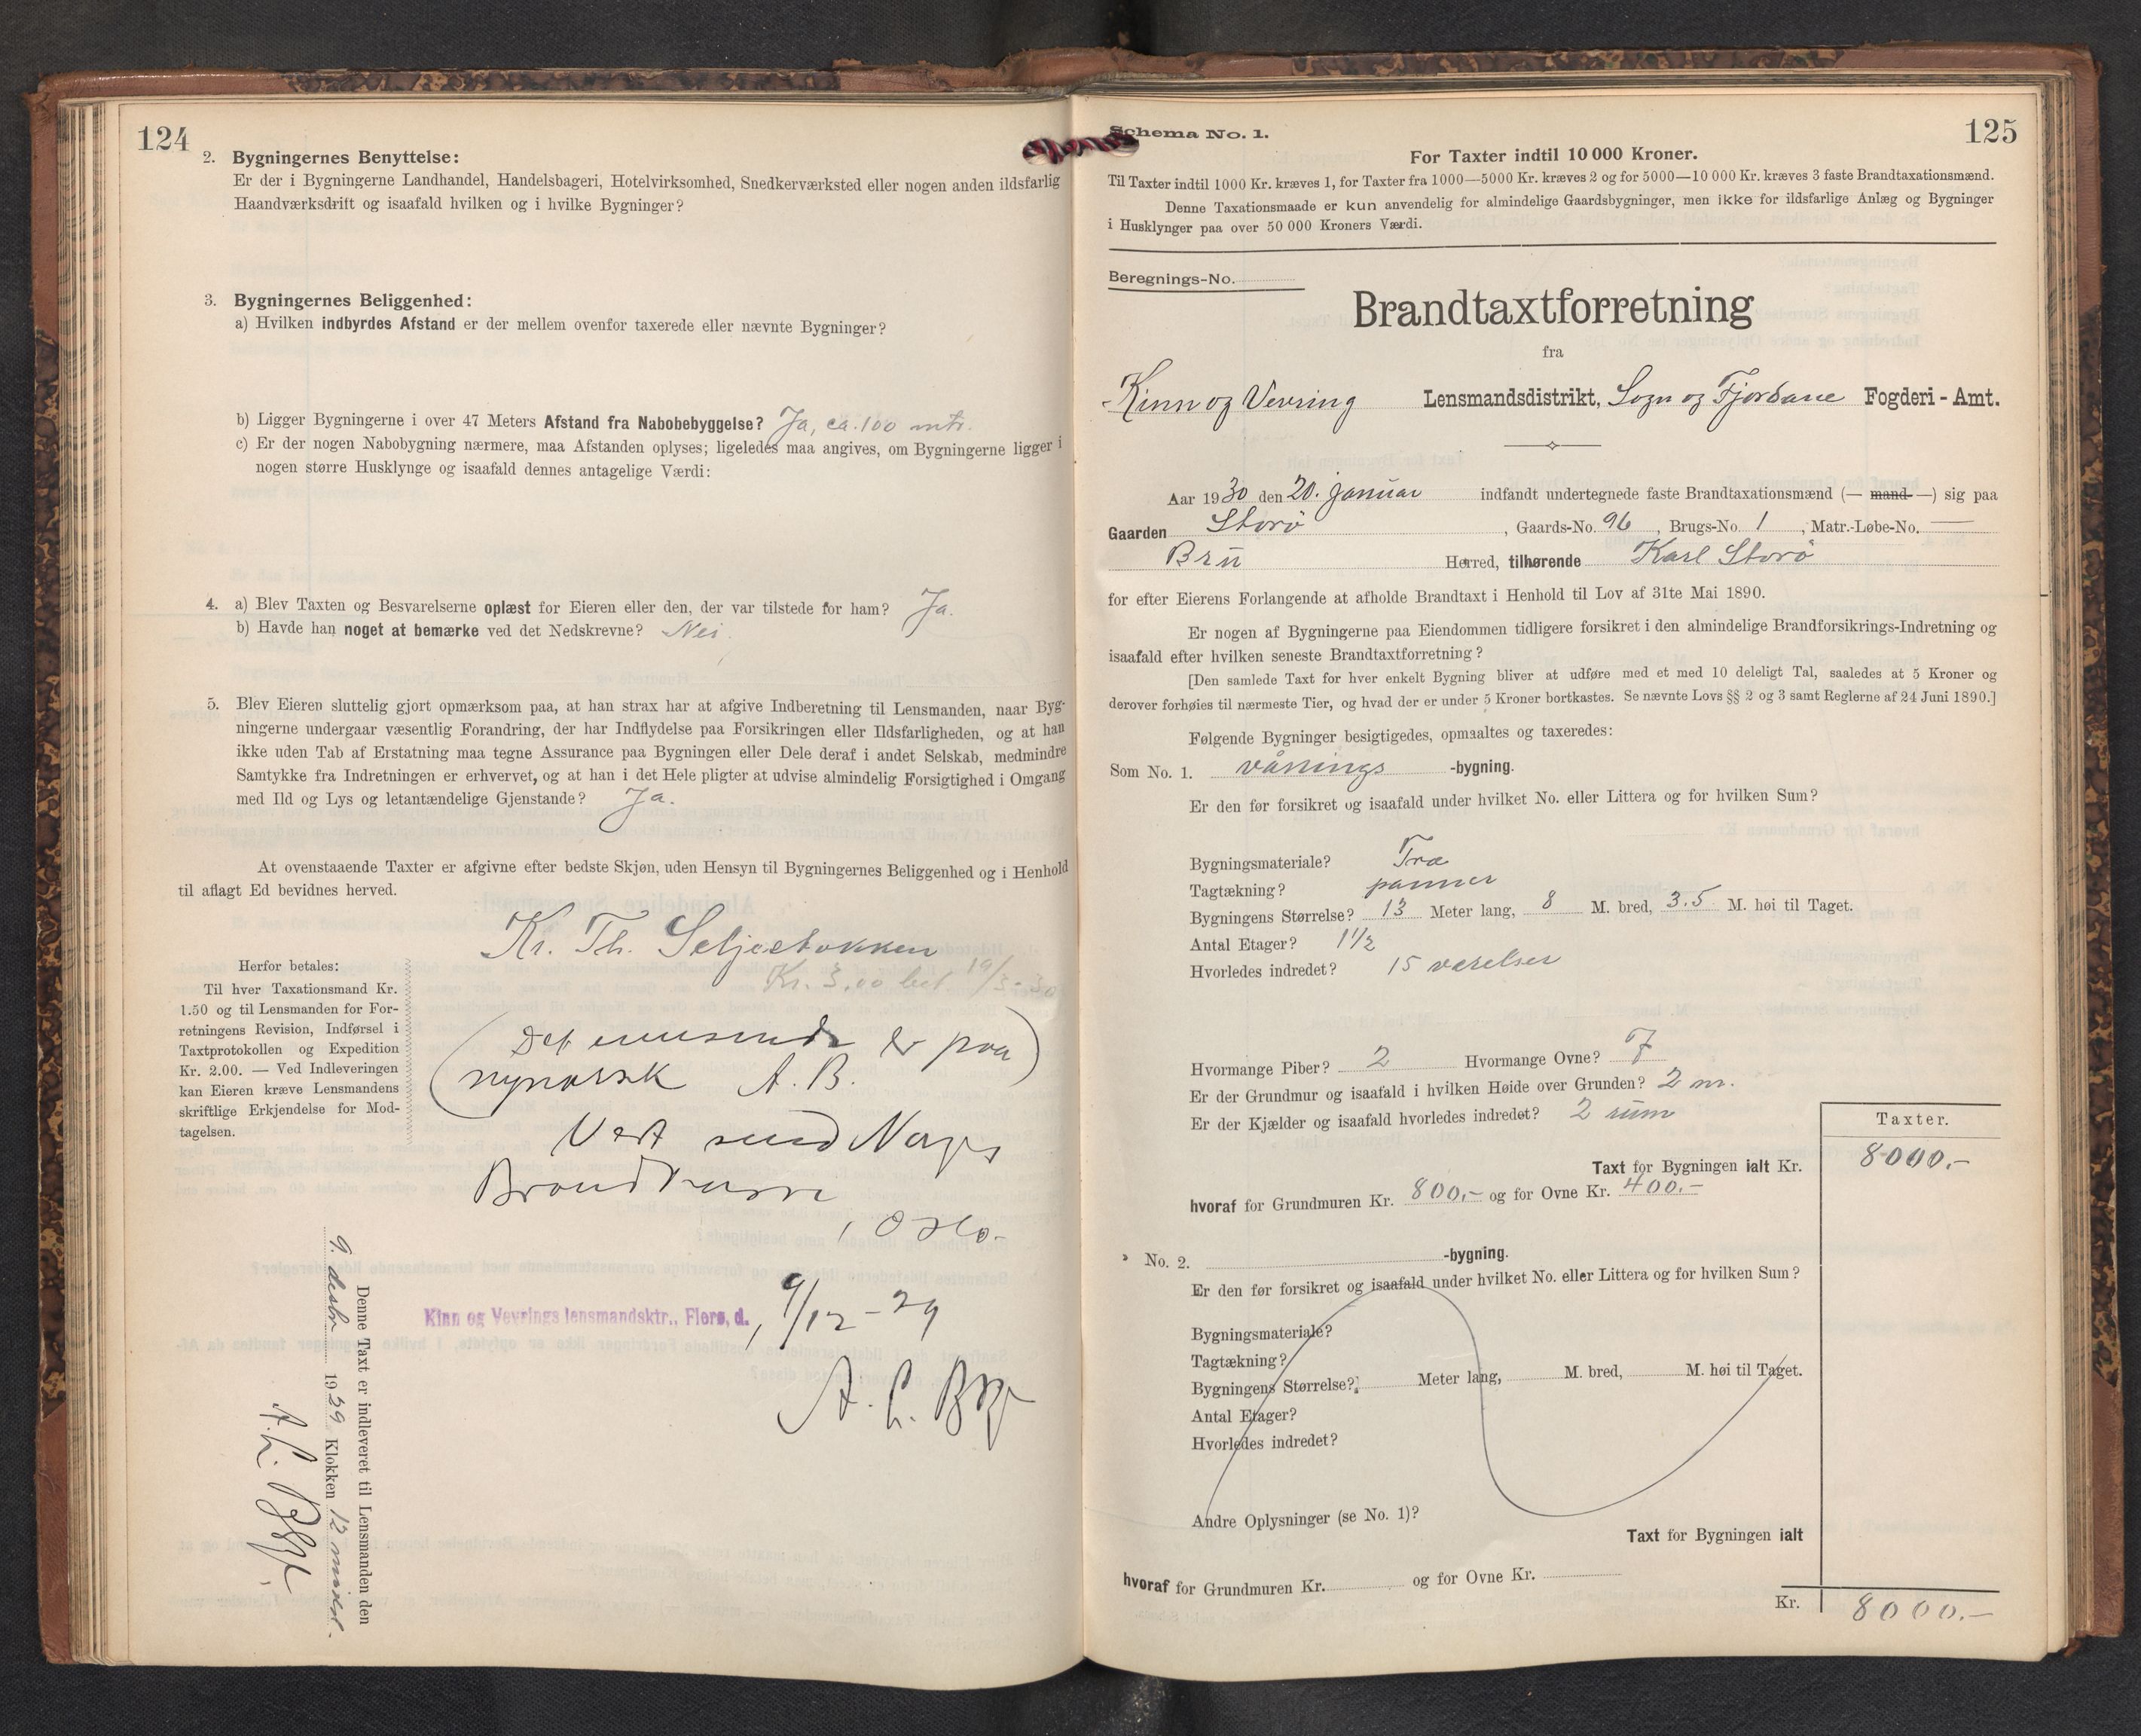 124
2. Bygningernes Benyttelse:
Er der i Bygningerne Landhandel, Handelsbageri, Hotelvirksomhed, Snedkerværksted eller nogen anden ildsfarlig
Haandværksdrift og isaafald hvilken og i hvilke Bygninger?
3. Bygningernes Beliggenhed:
a) Hvilken indbyrdes Afstand er der mellem ovenfor taxerede eller nævnte Bygninger?
b) Ligger Bygningerne i over 47 Meters Afstand fra Nabobebyggelse? Ja, ca. 100 mtr.
c) Er der nogen Nabobygning nærmere, maa Afstanden oplyses; ligeledes maa angives, om Bygningerne ligger i
nogen større Husklynge og isaafald dennes antagelige Værdi:
4. a) Blev Taxten og Besvarelserne oplæst for Eieren eller den, der var tilstede for ham? Ja.
b) Havde han noget at bemærke ved det Nedskrevne? Nei.
5. Blev Eieren sluttelig gjort opmærksom paa, at han strax har at afgive Indberetning til Lensmanden, naar Byg-
ningerne undergaar væsentlig Forandring, der har Indflydelse paa Forsikringen eller Ildsfarligheden, og at han
ikke uden Tab af Erstatning maa tegne Assurance paa Bygningen eller Dele deraf i andet Selskab, medmindre
Samtykke fra Indretningen er erhvervet, og at han i det Hele pligter at udvise almindelig Forsigtighed i Omgang
med Ild og Lys og letantændelige Gjenstande? Ja.
At ovenstaaende Taxter er afgivne efter bedste Skjøn, uden Hensyn til Bygningernes Beliggenhed og i Henhold
til aflagt Ed bevidnes herved.
Kr. Th. Seljestokken
Kr. 3,00 bet. 19/3-30
Herfor betales:
Til hver Taxationsmand Kr.
1.50 og til Lensmanden for For-
retningens Revision, Indførsel i
Taxtprotokollen og Expedition
Kr. 2.00. — Ved Indleveringen
kan Eieren kræve Lensmandens
skriftlige Erkjendelse for Mod-
tagelsen.
(Det innsendte er paa
nynorsk A. B.)
Vert send Norges
Brandkasse
i Oslo.
Kinn og Vevrings lensmandsktr., Florø, d. 9/12-29
A. L.
Denne Taxt er indleveret til Lensmanden den
9. desbr 1929 Klokken 12 middel.
A. L.
125
Schema No. 1.
For Taxter indtil 10 000 Kroner.
Til Taxter indtil 1000 Kr. kræves 1, for Taxter fra 1000—5000 Kr. kræves 2 og for 5000—10 000 Kr. kræves 3 faste Brandtaxationsmænd.
Denne Taxationsmaade er kun anvendelig for almindelige Gaardsbygninger, men ikke for ildsfarlige Anlæg og Bygninger
i Husklynger paa over 50 000 Kroners Værdi.
Beregnings-No.
Brandtaxtforretning
fra
Kinn og Vevring Lensmandsdistrikt, Sogn og Fjordane Fogderi - Amt.
Aar 1930 den 20. januar indfandt undertegnede faste Brandtaxationsmænd (— mand —) sig paa
Gaarden Storø, Gaards-No. 96, Brugs-No. 1, Matr.-Løbe-No. —
Bru Herred, tilhørende Karl Storø
for efter Eierens Forlangende at afholde Brandtaxt i Henhold til Lov af 31te Mai 1890.
Er nogen af Bygningerne paa Eiendommen tidligere forsikret i den almindelige Brandforsikrings-Indretning og
isaafald efter hvilken seneste Brandtaxtforretning?
[Den samlede Taxt for hver enkelt Bygning bliver at udføre med et med 10 deleligt Tal, saaledes at 5 Kroner og
derover forhøies til nærmeste Tier, og hvad der er under 5 Kroner bortkastes. Se nævnte Lovs §§ 2 og 3 samt Reglerne af 24 Juni 1890.]
Følgende Bygninger besigtigedes, opmaaltes og taxeredes:
Som No. 1. vånings -bygning.
Er den før forsikret og isaafald under hvilket No. eller Littera og for hvilken Sum?
Bygningsmateriale? Træ
Tagtækning? panner
Bygningens Størrelse? 13 Meter lang, 8 M. bred, 3.5 M. høi til Taget.
Antal Etager? 1 1/2
Hvorledes indredet? 15 værelser
Hvormange Piber? 2 Hvormange Ovne? 7
Er der Grundmur og isaafald i hvilken Høide over Grunden? 2 m.
Er der Kjælder og isaafald hvorledes indredet? 2 rum
Taxter.
Taxt for Bygningen ialt Kr. 8000.-
hvoraf for Grundmuren Kr. 800.- og for Ovne Kr. 400.-
» No. 2. -bygning.
Er den før forsikret og isaafald under hvilket No. eller Littera og for hvilken Sum?
Bygningsmateriale?
Tagtækning?
Bygningens Størrelse? Meter lang, M. bred, M. høi til Taget.
Antal Etager?
Hvorledes indredet?
Andre Oplysninger (se No. 1)?
Taxt for Bygningen ialt
hvoraf for Grundmuren Kr. og for Ovne Kr.
Kr. 8000.-